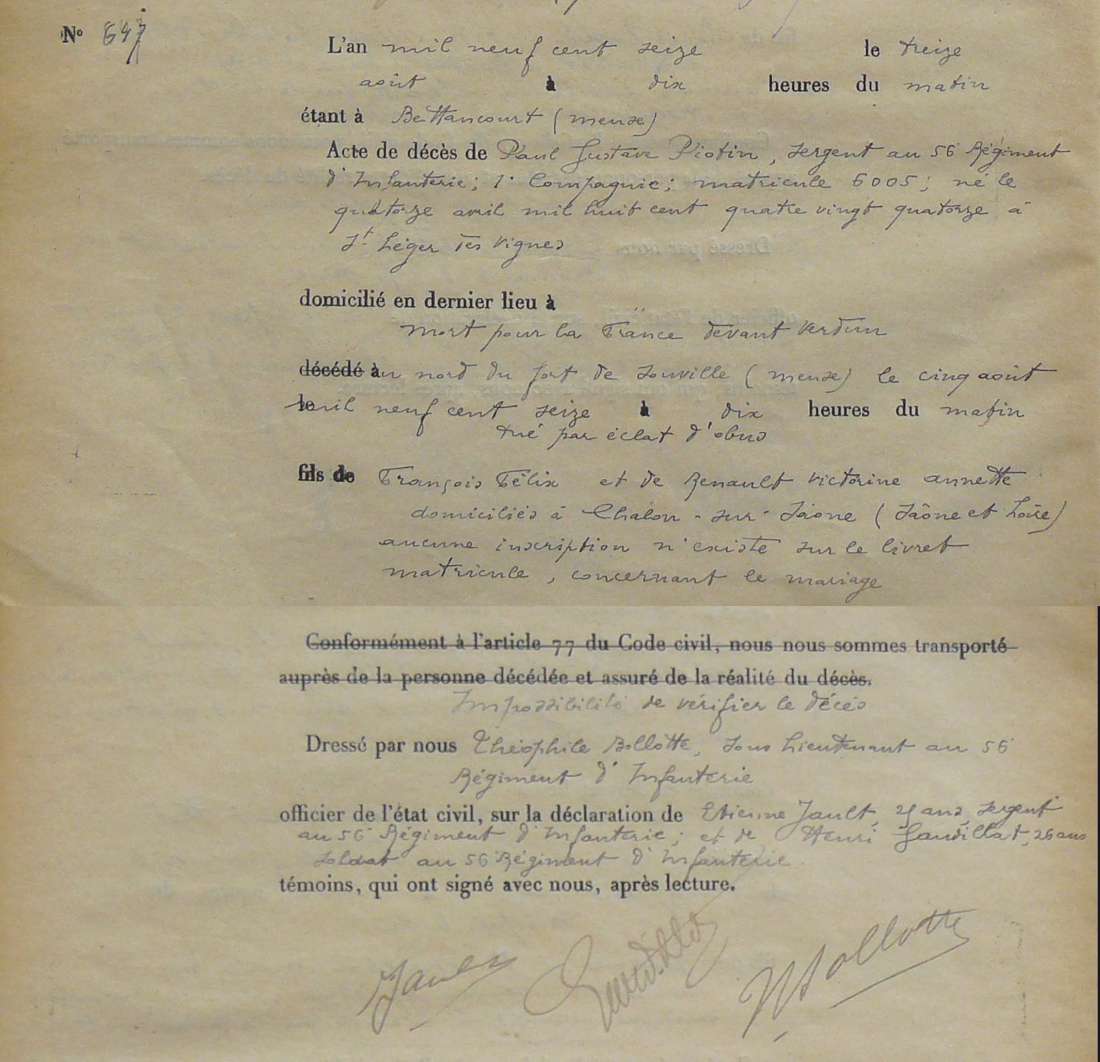 N° 647
L'an mil neuf cent seize le treize
août à dix heures du matin
étant à Bettancourt (meuse)
Acte de décès de Paul Gustave Piotin, sergent au 56 Régiment
d'Infanterie; 1e Compagnie; matricule 6005; né le
quatorze avril mil huit cent quatre vingt quatorze à
St Léger les vignes
domicilié en dernier lieu à
mort pour la France devant Verdun
décédé à au nord du fort de Souville (meuse) le cinq août
le mil neuf cent seize à dix heures du matin
tué par éclat d'obus
fils de François Félix et de Renault Victorine annette
domiciliés à Chalon-sur-Saône (Saône et Loire)
aucune inscription n'existe sur le livret
matricule, concernant le mariage
Conformément à l'article 77 du Code civil, nous nous sommes transporté
auprès de la personne décédée et assuré de la réalité du décès.
Impossibilité de vérifier le décès
Dressé par nous Théophile Bollotte, sous Lieutenant au 56
Régiment d'Infanterie
officier de l'état civil, sur la déclaration de Etienne Jault, ans, sergent
au 56 Régiment d'Infanterie; et de Henri Gaudillat, 26 ans
soldat au 56 Régiment d'Infanterie
témoins, qui ont signé avec nous, après lecture.
Bollotte